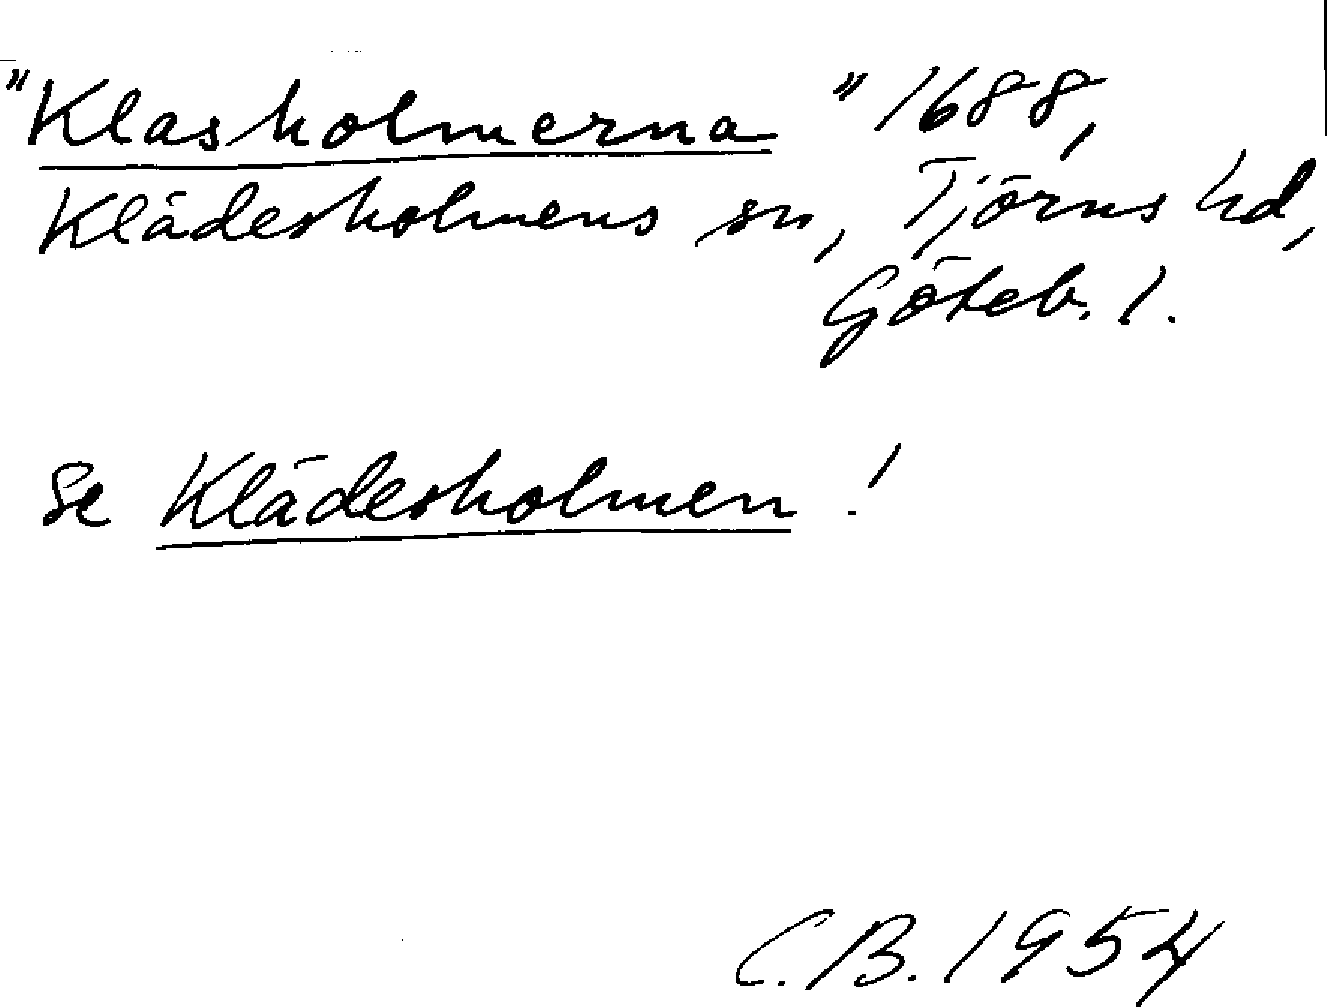 "Klasholmerna" 1688,
Klädesholmens sn, Tjörns hd,
Göteb. l.
Se Klädesholmen!
C.B. 1954